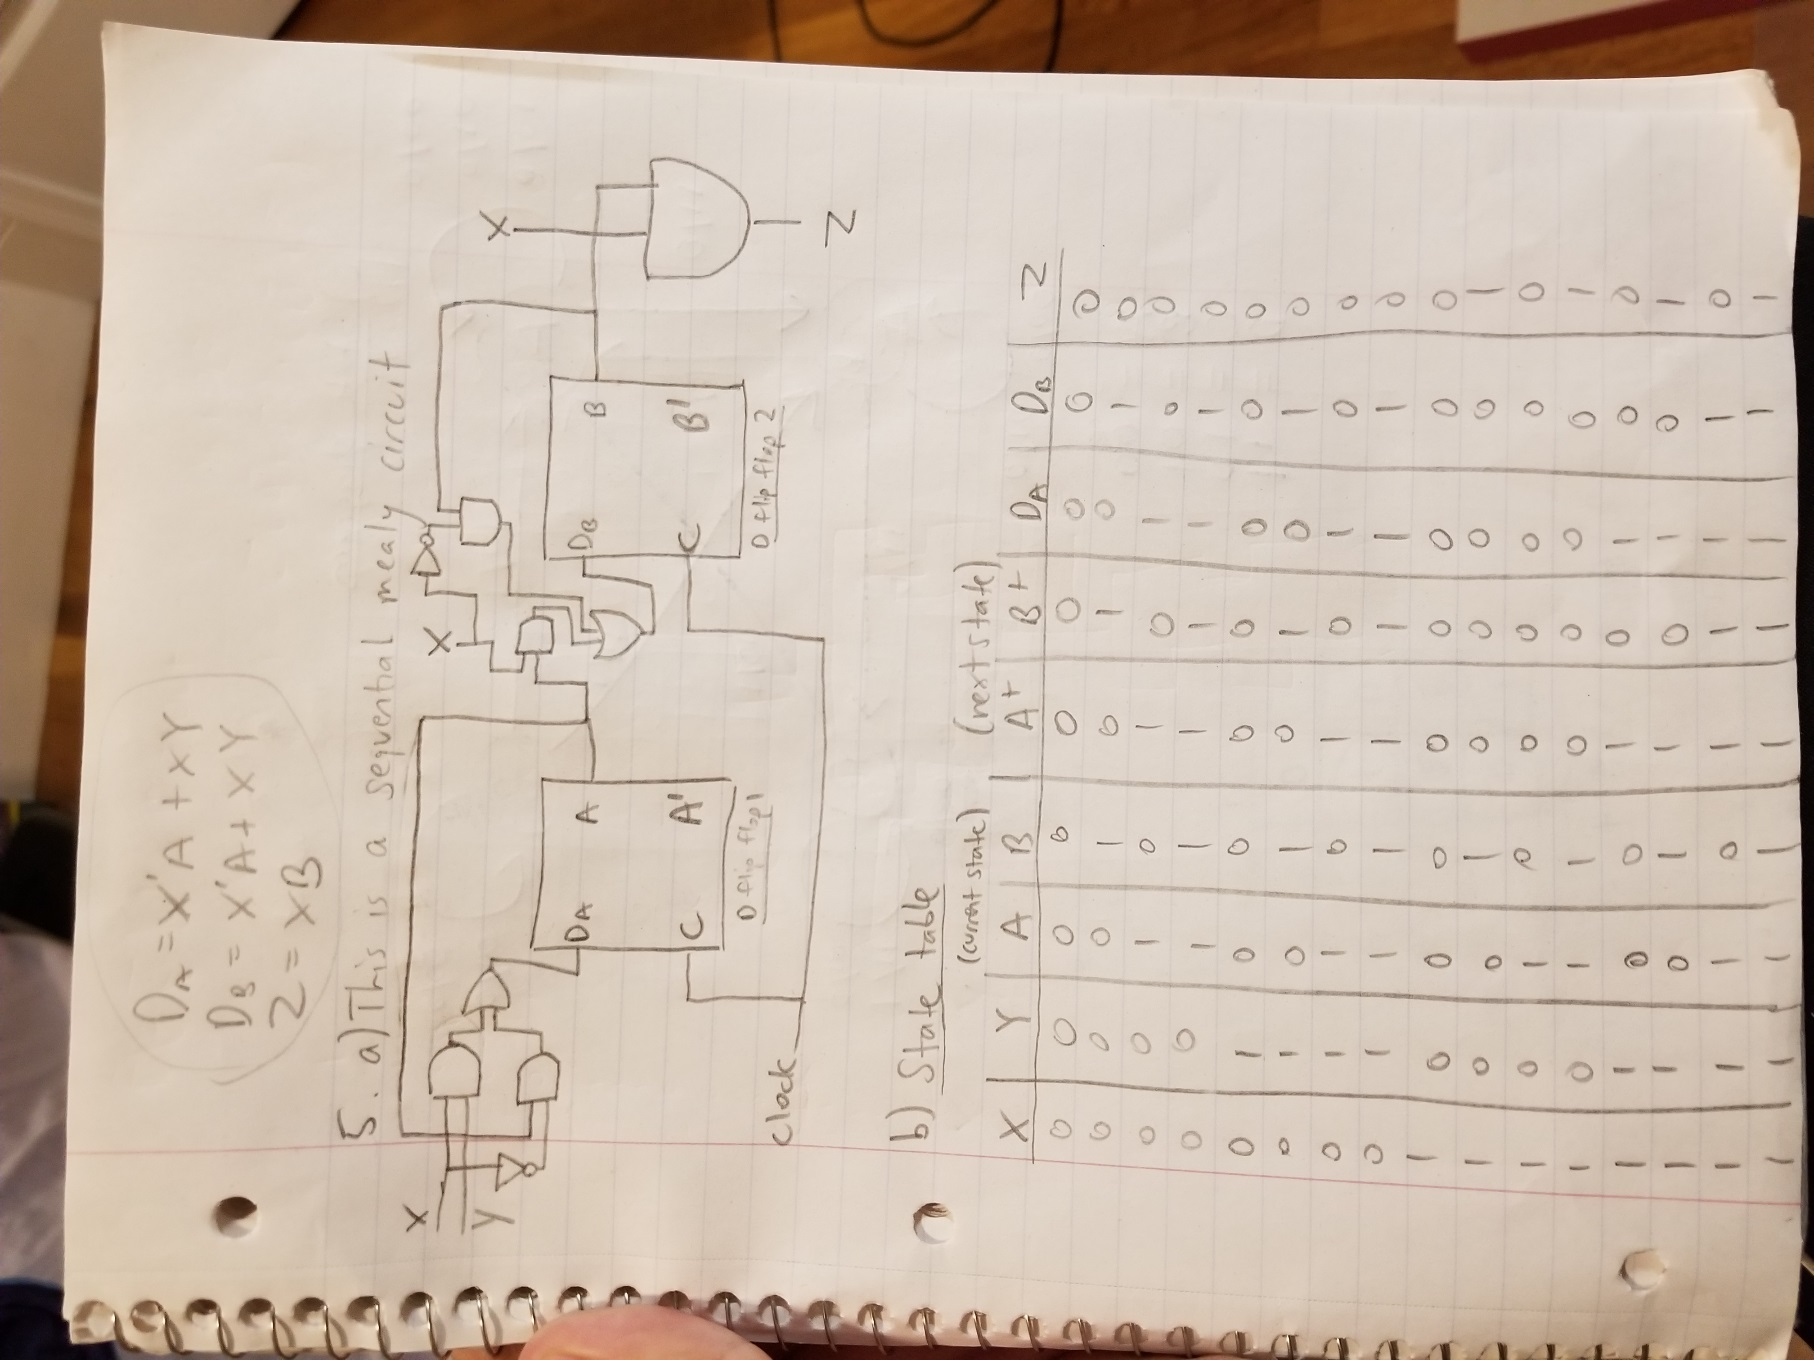 D_A = X'A + XY
D_B = X'A + XY
Z = XB
5. a) This is a sequential mealy circuit
X
Y
D_A A
C A'
D flip flop 1
X
D_B B
C B'
D flip flop 2
X
Z
Clock
b) State table
(current state) (next state)
X Y A B A+ B+ D_A D_B Z
0 0 0 0 0 0 0 0 0
0 0 0 1 0 1 0 1 0
0 0 1 0 1 0 1 0 0
0 0 1 1 1 1 1 1 0
0 1 0 0 0 0 0 0 0
0 1 0 1 0 1 0 1 0
0 1 1 0 1 0 1 0 0
0 1 1 1 1 1 1 1 0
1 0 0 0 0 0 0 0 0
1 0 0 1 0 0 0 0 1
1 0 1 0 0 0 0 0 0
1 0 1 1 0 0 0 0 1
1 1 0 0 1 0 1 0 0
1 1 0 1 1 0 1 0 1
1 1 1 0 1 1 1 1 0
1 1 1 1 1 1 1 1 1